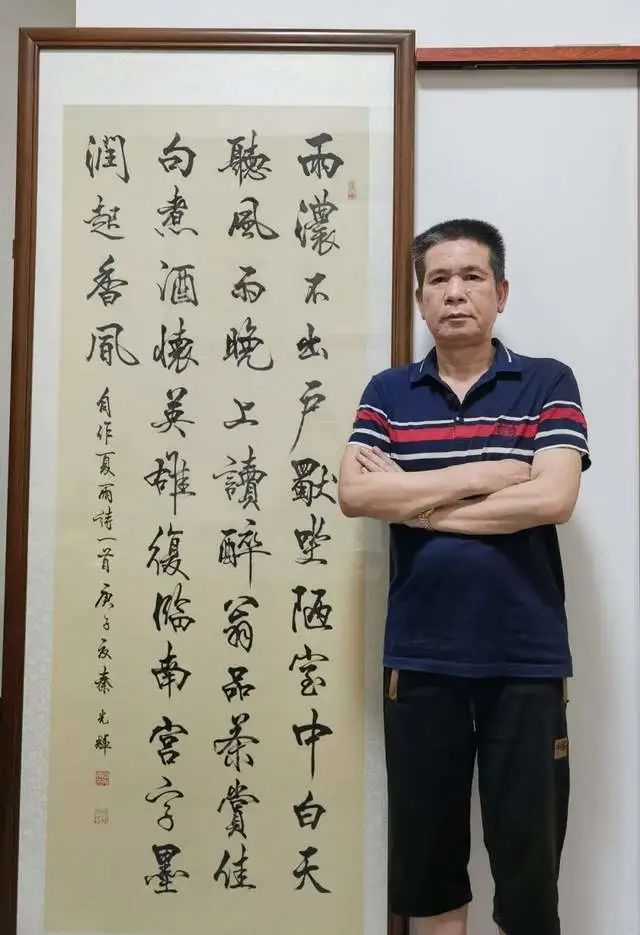 雨濃不出戶默坐陋室中白天
聽風雨晚上讀醉翁品茶賞佳
句煮酒懷英雄復臨南宮字墨
潤起香風
自作夏雨詩一首庚子夏秦光輝